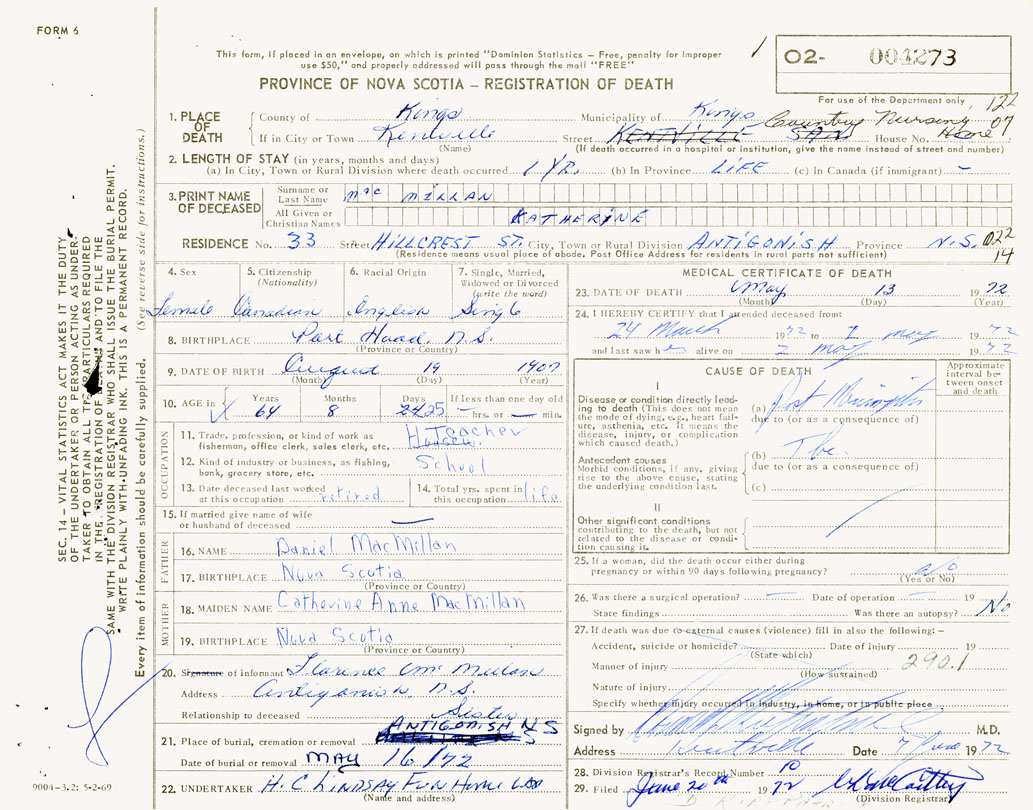 FORM 6
This form, if placed in an envelope, on which is printed "Dominion Statistics – Free, penalty for improper
use $50," and properly addressed will pass through the mail "FREE"
PROVINCE OF NOVA SCOTIA – REGISTRATION OF DEATH
02- 004273
For use of the Department only
122
07
1. PLACE OF DEATH
County of Kings Municipality of Kings
If in City or Town Kentville Street KENTVILLE SAN Country Nursing Home House No.
(Name) (If death occurred in a hospital or institution, give the name instead of street and number)
2. LENGTH OF STAY (in years, months and days)
(a) In City, Town or Rural Division where death occurred 1 YR. (b) In Province LIFE (c) In Canada (if immigrant) –
3. PRINT NAME OF DECEASED
Surname or Last Name Mac MILLAN
All Given or Christian Names KATHERINE
RESIDENCE No. 33 Street HILLCREST ST. City, Town or Rural Division ANTIGONISH Province N.S. 022
14
(Residence means usual place of abode. Post Office Address for residents in rural parts not sufficient)
4. Sex 5. Citizenship (Nationality) 6. Racial Origin 7. Single, Married, Widowed or Divorced (write the word)
Female Canadian English Single
8. BIRTHPLACE Port Hood N.S.
(Province or Country)
9. DATE OF BIRTH August 19 1907
(Month) (Day) (Year)
10. AGE in Years Months Days If less than one day old
64 8 24 25 – hrs. or – min.
OCCUPATION
11. Trade, profession, or kind of work as
fisherman, office clerk, sales clerk, etc. Teacher
12. Kind of industry or business, as fishing,
bank, grocery store, etc. School
13. Date deceased last worked
at this occupation retired
14. Total yrs. spent in
this occupation life
15. If married give name of wife
or husband of deceased —
FATHER
16. NAME Daniel MacMillan
17. BIRTHPLACE Nova Scotia
(Province or Country)
MOTHER
18. MAIDEN NAME Catherine Anne MacMillan
19. BIRTHPLACE Nova Scotia
(Province or Country)
20. Signature of informant Florence McMillan
Address Antigonish N.S.
Relationship to deceased Sister
21. Place of burial, cremation or removal ANTIGONISH N S
Date of burial or removal MAY 16/72
22. UNDERTAKER H. C LINDSAY FUN HOME LTD
(Name and address)
MEDICAL CERTIFICATE OF DEATH
23. DATE OF DEATH May 13 1972
(Month) (Day) (Year)
24. I HEREBY CERTIFY that I attended deceased from:
24 March 1972 to 2 May 1972
and last saw her alive on 2 May 1972
CAUSE OF DEATH
Approximate interval between onset and death
I
Disease or condition directly leading to death (This does not mean the mode of dying, e.g., heart failure, asthenia, etc. It means the disease, injury, or complication which caused death.)
(a) Post
due to (or as a consequence of)
Antecedent causes
Morbid conditions, if any, giving rise to the above cause, stating the underlying condition last.
(b) Tbc.
due to (or as a consequence of)
(c)
II
Other significant conditions
contributing to the death, but not related to the disease or condition causing it.
25. If a woman, did the death occur either during
pregnancy or within 90 days following pregnancy?
(Yes or No)
26. Was there a surgical operation? – Date of operation – 19
State findings Was there an autopsy? No
27. If death was due to external causes (violence) fill in also the following: –
Accident, suicide or homicide? Date of injury 19
(State which)
Manner of injury 290.1
(How sustained)
Nature of injury
Specify whether injury occurred in industry, in home, or in public place
Signed by M.D.
Address Kentville Date 7 June 1972
28. Division Registrar's Record Number 10
29. Filed June 20th 1972
(Division Registrar)
SEC. 14 – VITAL STATISTICS ACT MAKES IT THE DUTY
OF THE UNDERTAKER OR PERSON ACTING AS UNDER-
TAKER TO OBTAIN ALL THE PARTICULARS REQUIRED
IN THE REGISTRATION OF DEATHS AND TO FILE THE
SAME WITH THE DIVISION REGISTRAR WHO SHALL ISSUE THE BURIAL PERMIT.
WRITE PLAINLY WITH UNFADING INK. THIS IS A PERMANENT RECORD.
Every item of information should be carefully supplied. (See reverse side for instructions.)
9004–3.2: 5-2-69